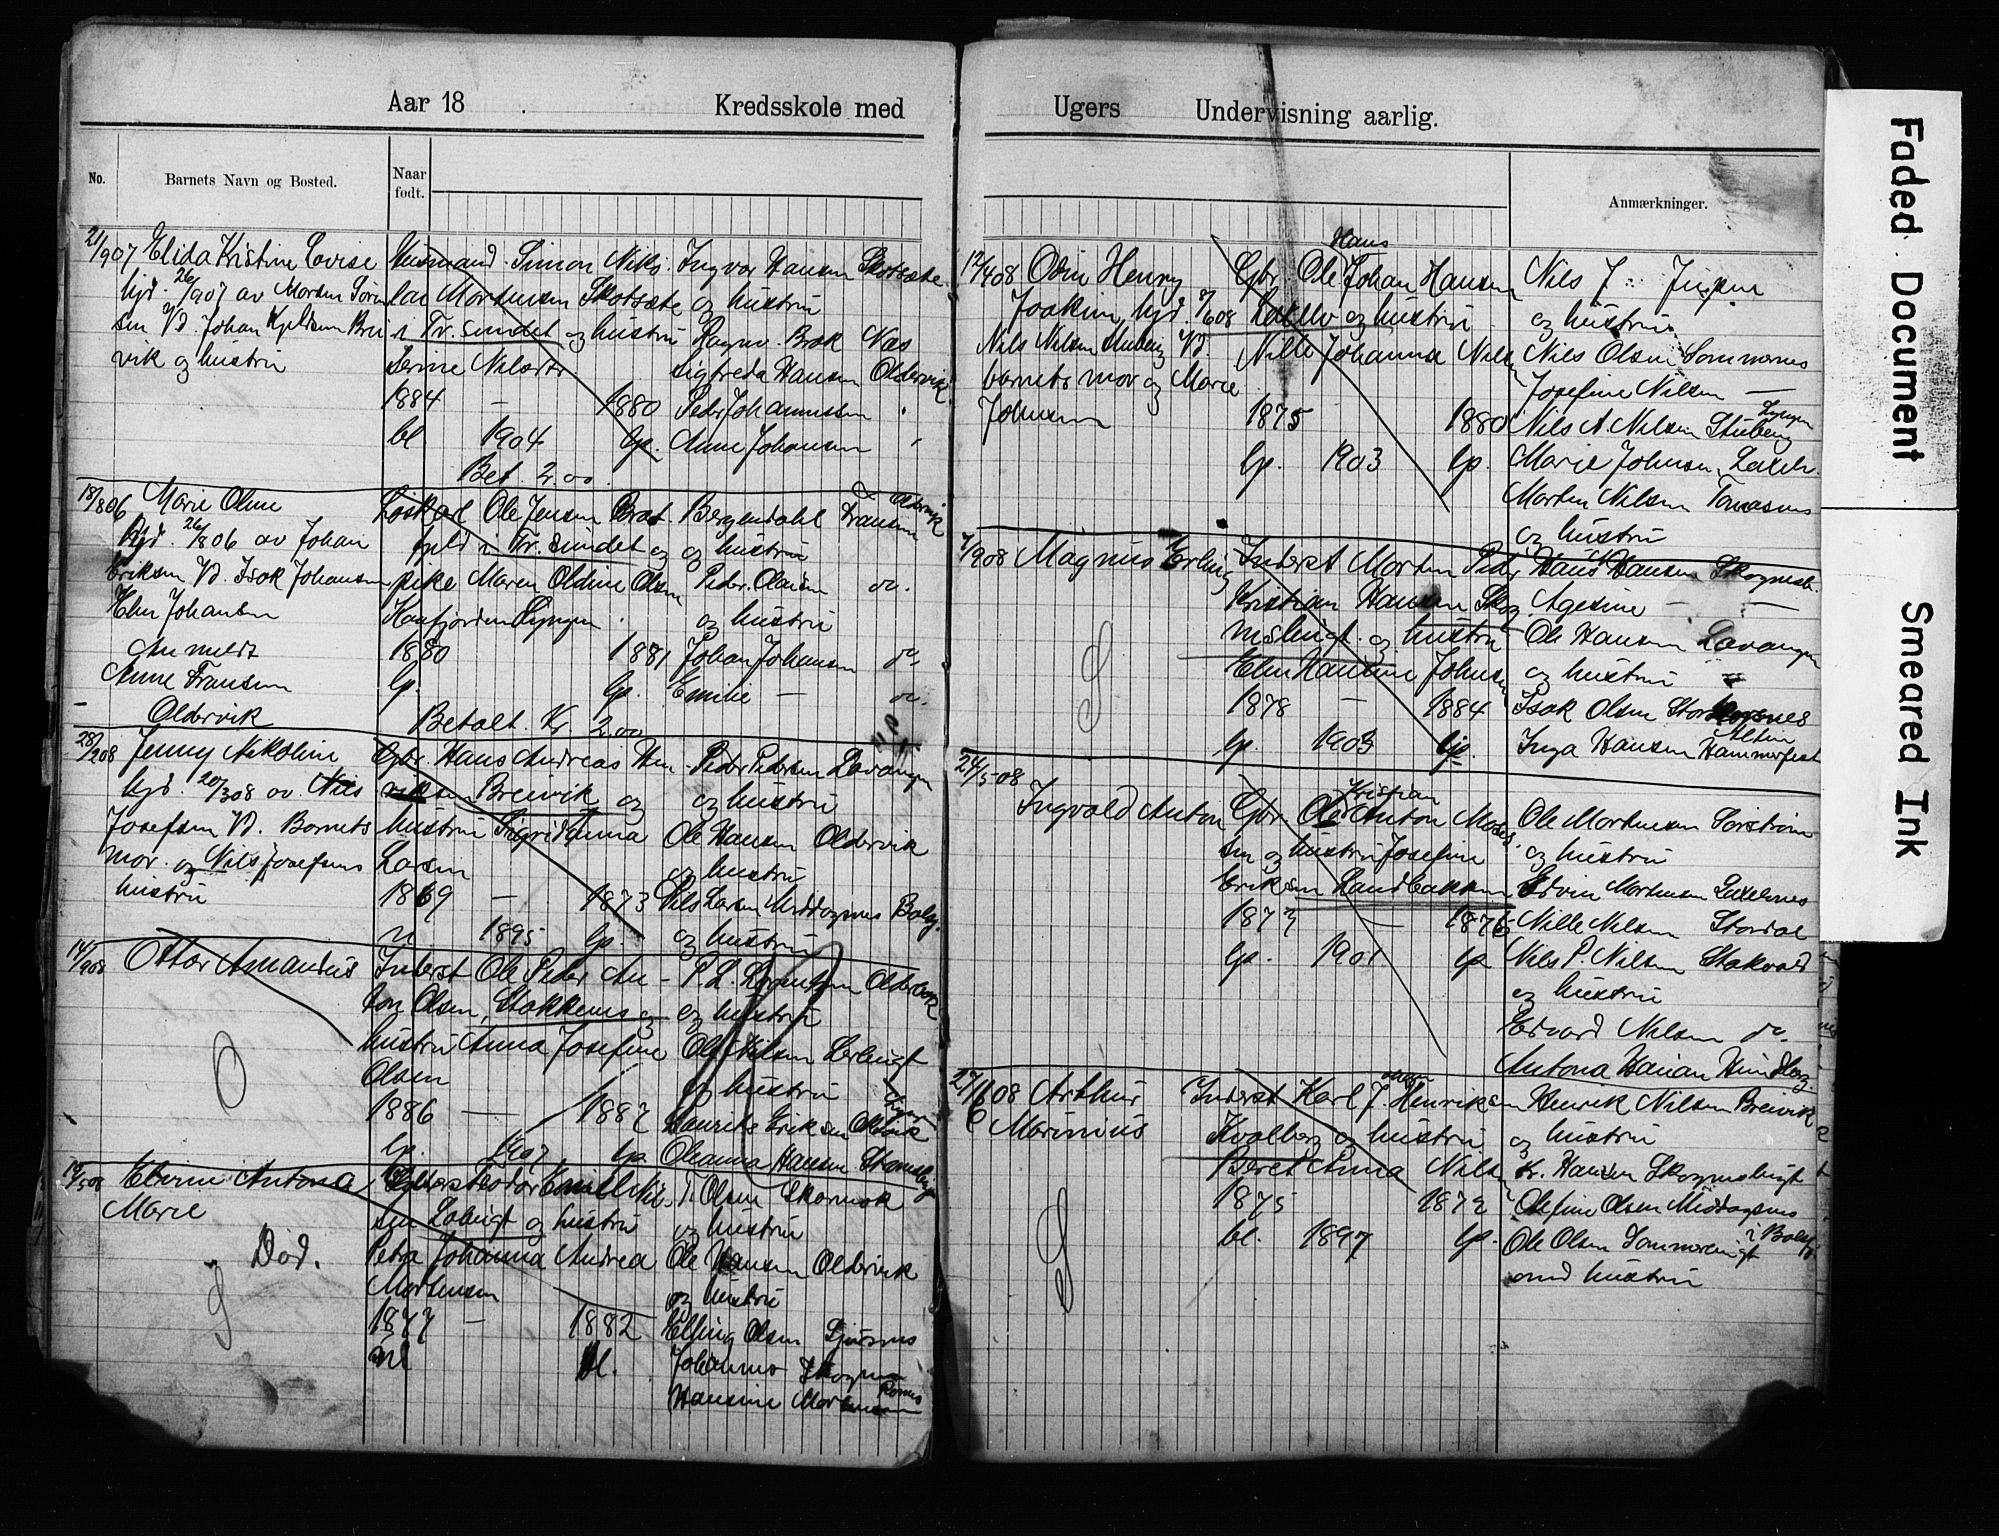 Aar 18 Kredsskole med
No. Barnets Navn og Bosted. Naar født.
21/907 Elida Kristine Lovise
hjd. 26/907 av Morten Søren
sen Vd. Johan Kjeldsen Brei
vik og hustru
Husmand Simon Niko
lai Mortensen Skotsæte
i Tr. sundet og hustru
Serine Nilsdtr.
1884 — 1880
bl 1904 lp.
Bet. 2.00.
Ingvor Hansen Skotsæte
og hustru
Ragnv. Brok Næs
Sigfreda Hansen Oldervik
Peder Johannessen "
Anne Johansen "
18/806 Marie Oline
Hjd. 26/806 av Johan
Eriksen Vd. Isak Johansen
Elen Johansen
Anmeldt
Anne Fransen
Oldervik
Løskarl Ole Jensen Brat
fjeld i Tr. sundet og
pike Maren Oldine Olsen
Kaafjorden Lyngen.
1880 1881
lp. lp.
Betalt Kr 2.00
Bergendahl Fransen Oldervik
og hustru
Peder Olaisen do.
og hustru
Johan Johansen do.
Emilie — do.
28/208 Jenny Nikoline
hjd. 20/308 av Nils
Josefsen Vd. Barnets
mor og Nils Josefsens
hustru
Gbr. Hans Andreas Hen
riksen Breivik og
hustru Sigrid Anna
Larsen
1869 — 1873
1895 lp.
Peder Pedersen Lavangen
og hustru
Ole Hansen Oldervik
og hustru
Nils Larsen Middagsnes Balsf.
og hustru
14/908 Ottar Amandus
Inderst Ole Peder An-
ton Olsen, Stakkenes og
hustru Anna Josefine
Olsen
1886 — 1887
lp. 1907 lp.
P. L. Lorentzen Oldervik
og hustru
Ole Nilsen Lerbugt
og hustru
Laurits Eriksen Oldervik
Oleanna Hansen
14/508 Elvine Antona
Marie
Død.
Teodor Emil Nil
sen Løbugt og hustru
Petra Johanna Andrea
Mortensen
1877 — 1882
bl.
T. Olsen Skarmok
og hustru
Ole Hansen Oldervik
og hustru
Elling Olsen
Johannes Skognes
Hansine Mortensen
Ugers Undervisning aarlig.
Anmærkninger.
12/408 Odin Henry
Joakim, hjd. 8/608
Nils Nilsen Stuberg Vd.
barnets mor og Marie
Johnsen
Hans
Gbr. Ole Johan Hansen
Lakselv og hustru
Nille Johanna Nilsen
1875 1880
lp. 1903 lp.
Nils J.
og hustru
Nils Olsen Sommernes
Josefine Nilsen —
Nils A. Nilsen Stuberg Lyngen
Marie Johnsen, Lakselv
Morten Nilsen Tomasnes
og hustru
7/908 Magnus Erling
Inderst Morten Peder
Kristian Hansen Skog
nesbugt og hustru
Elen Hansine Johnsen
1878 — 1884
lp. 1903 lp.
Hans Hansen Skognesb.
Agesine — —
Ole Hansen Lavangen
og hustru
Isak Olsen Storsteinnes
Inga Hansen Hammerfest
24/508
Ingvald Anton
Kristian
Gbr. Ole Anton Moses
sen og hustru Josefine
Eriksen Sandbakken
1873 — 1876
lp. 1901 lp
Ole Mortensen Sørstrøm
og hustru
Edvin Mortensen Lakselvnes
Nille Nilsen Stordal
Nils P. Nilsen Stakvold
og hustru
Edvard Nilsen do.
Antona
27/608 Arthur
Marinius
Inderst Karl J. Henriksen
Kvalberg og hustru
Beret Anna Nilsen
1875 1872
bl. 1897 lp.
Henrik Nilsen Breivik
og hustru
Kr. Hansen Skognesbugt
Olefine Olsen Middagsnes i Balsfj.
Ole Olsen Sommerbugt
med hustru
Faded Document
Smeared Ink